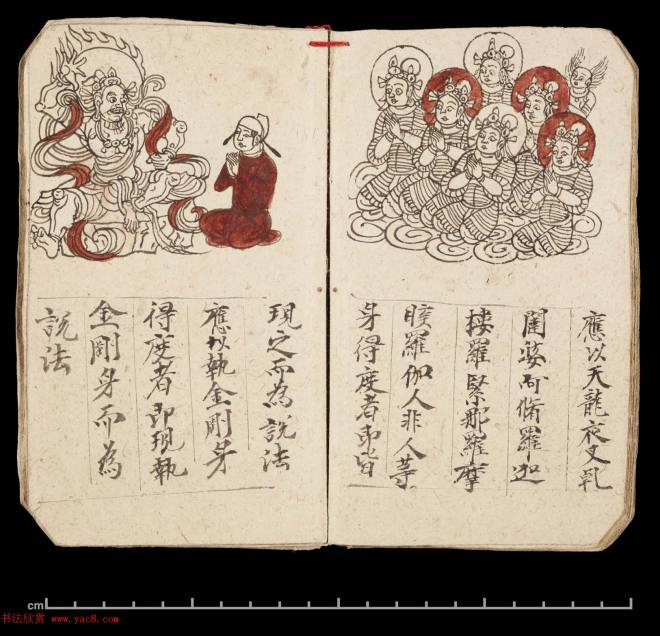 應以天龍夜叉乹
闥婆阿脩羅迦
摟羅緊那羅摩
睺羅伽人非人等
身得度者即皆
現之而為說法
應以執金剛身
得度者即現執
金剛身而為
說法
cm
书法欣赏 www.yac8.com